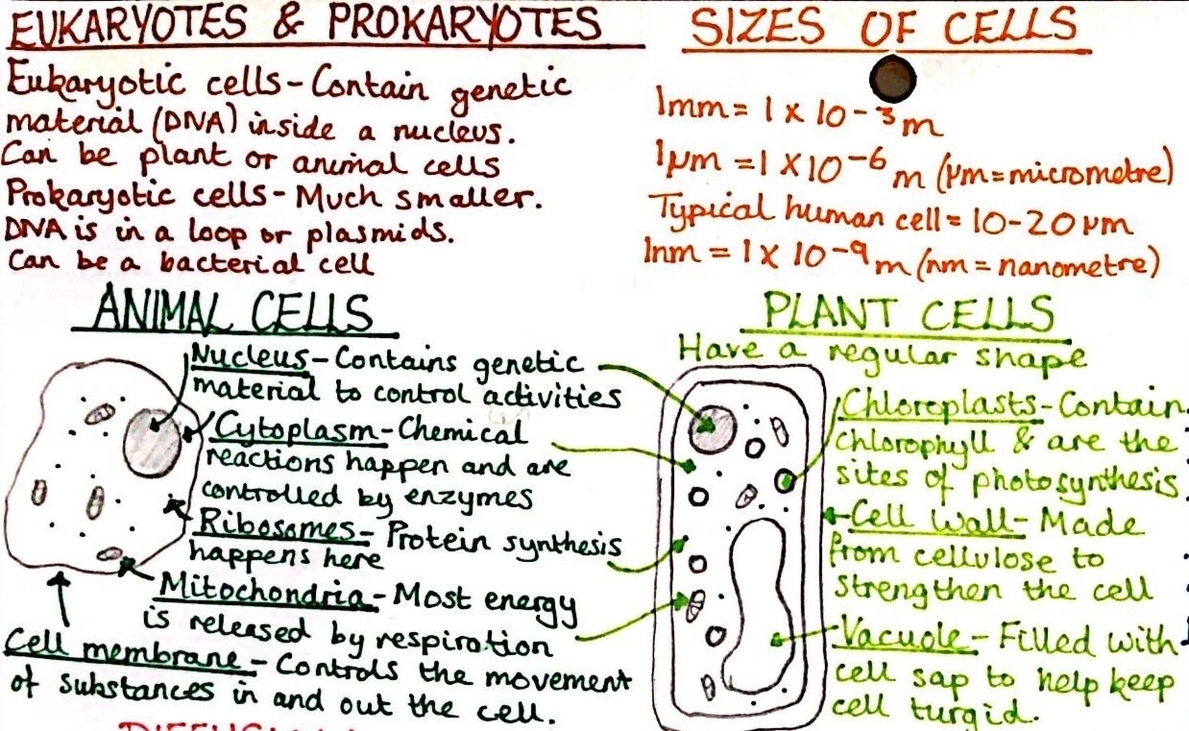 EUKARYOTES & PROKARYOTES
Eukaryotic cells - Contain genetic
material (DNA) inside a nucleus.
Can be plant or animal cells
Prokaryotic cells - Much smaller.
DNA is in a loop or plasmids.
Can be a bacterial cell
SIZES OF CELLS
1mm = 1 x 10-3 m
1µm = 1 x 10-6 m (µm = micrometre)
Typical human cell = 10-20 µm
1nm = 1 x 10-9 m (nm = nanometre)
ANIMAL CELLS
Nucleus - Contains genetic
material to control activities
Cytoplasm - Chemical
reactions happen and are
controlled by enzymes
Ribosomes - Protein synthesis
happens here
Mitochondria - Most energy
is released by respiration
Cell membrane - Controls the movement
of substances in and out the cell.
PLANT CELLS
Have a regular shape
Chloroplasts - Contain
chlorophyll & are the
sites of photosynthesis
Cell wall - Made
from cellulose to
strengthen the cell
Vacuole - Filled with
cell sap to help keep
cell turgid.